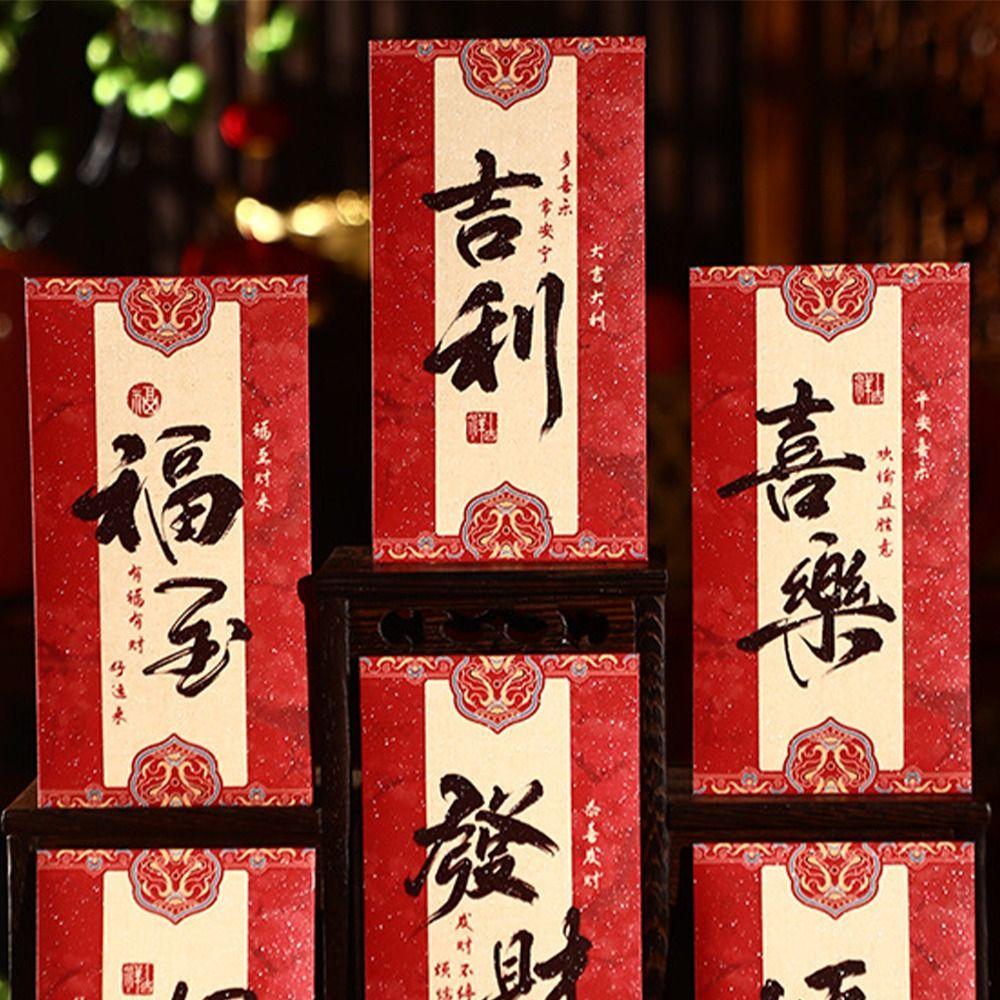 吉利
多喜乐
常安宁
大吉大利
福
福至
福至财来
有福有财
好运来
喜樂
欢愉且胜意
平安喜乐
發财
恭喜发财
发财不停